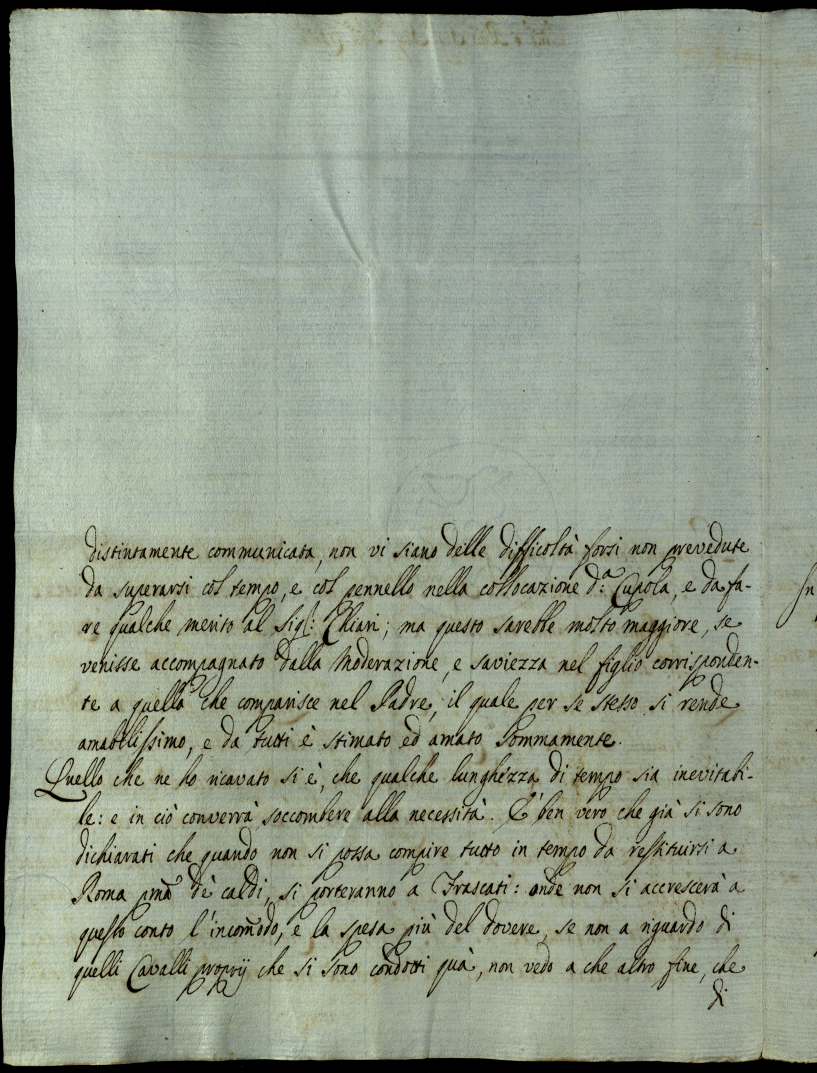 distintamente communicata, non vi siano delle difficoltà forsi non prevedute
da superarsi col tempo, e col pennello nella collocazione d.ª Cupola, e da fa-
re qualche merito al Sig.r Chiari; ma questo sarebbe molto maggiore, se
venisse accompagnato dalla moderazione, e saviezza nel figlio corrisponden-
te a quella che comparisce nel Padre, il quale per se stesso si rende
amabilissimo, e da tutti è stimato ed amato sommamente.
Quello che ne ho ricavato si è, che qualche lunghezza di tempo sia inevitabi-
le: e in ciò converrà soccombere alla necessità. E' ben vero che già si sono
dichiarati che quando non si possa compire tutto in tempo da restituirsi a
Roma pmã de caldi, si porteranno a Frascati: onde non si accrescerà a
questo conto l'incom̃odo, e la spesa più del dovere, se non a riguardo di
quelli Cavalli proprij che si sono condotti quà, non vedo a che altro fine, che
di
In